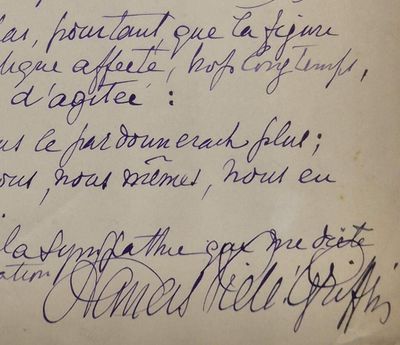 as, pourtant, que la figure
lique affecte, trop longtemps,
d'agitée :
us le pardonnerait plus;
ous, nous mêmes, nous en
la sympathie que me dicte
ation
Francis Vielé-Griffin